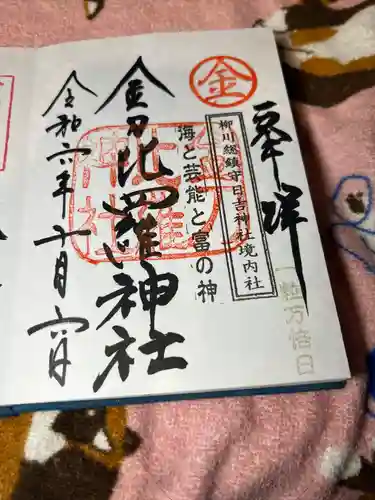 奉拝
一粒万倍日
柳川総鎮守日吉神社境内社
金
海と芸能と富の神
金刀比羅神社
令和六年十月六日